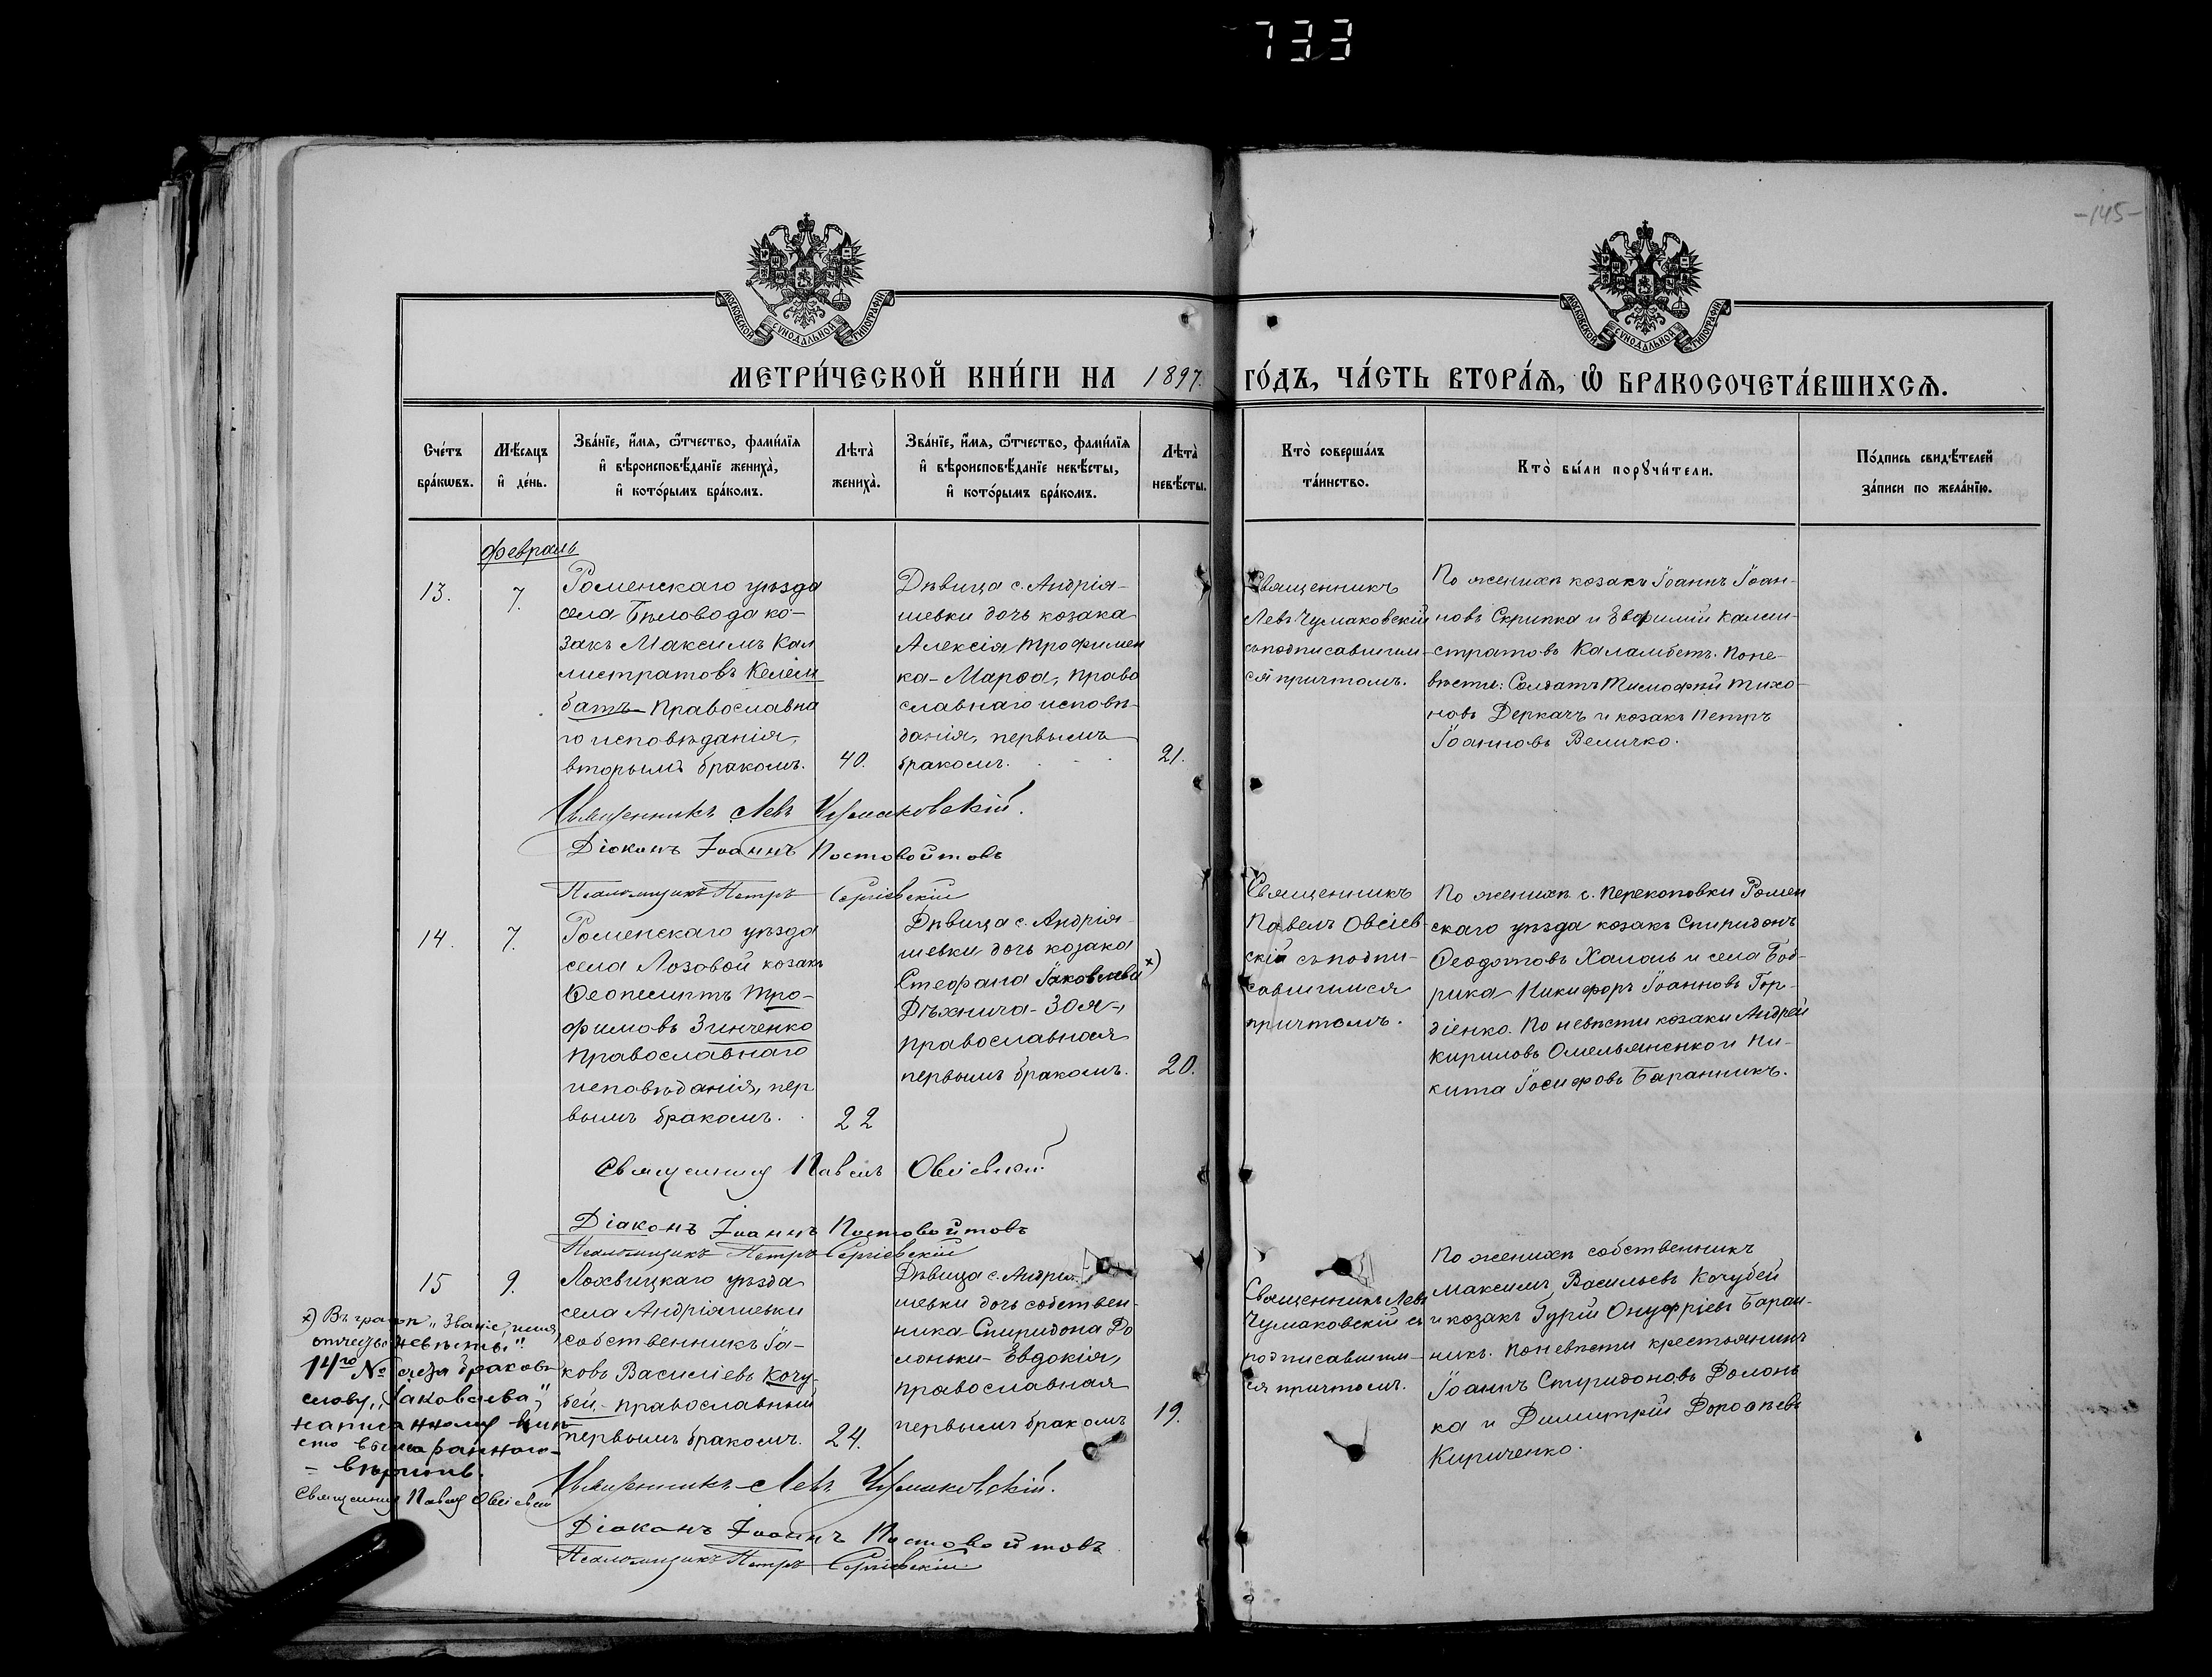 733
-145-
МОСКОВСКОЙ СУНОДАЛЬНОЙ ТИПОГРАФІИ
МОСКОВСКОЙ СУНОДАЛЬНОЙ ТИПОГРАФІИ
МЕТРИ́ЧЕСКОЙ КНИ́ГИ НА 1897. ГО́ДЪ, ЧА́СТЬ ВТОРА́Я, Ѡ҆ БРАКОСОЧЕТА́ВШИХСЯ.
Сче́тъ
бра́кѡвъ.
Мѣ́сяцъ
и҆ де́нь.
Зва́нїе, и҆́мя, ѻ҆́тчество, фами́лїя
и҆ вѣроисповѣ́данїе жениха̀,
и҆ кото́рымъ бра́комъ.
Лѣта̀
жениха̀.
Зва́нїе, и҆́мя, ѻ҆́тчество, фами́лїя
и҆ вѣроисповѣ́данїе невѣ́сты,
и҆ кото́рымъ бра́комъ.
Лѣта̀
невѣ́сты.
Кто̀ соверша́лъ
та́инство.
Кто̀ бы́ли порꙋчи́тели.
По́дпись свидѣ́телей
за́писи по жела́нїю.
Февраль
13.
7.
Роменскаго уѣзда
села Бѣловода ко-
закъ Максимъ Кал
листратовъ Келем
батъ- Православна
го исповѣданія,
вторымъ бракомъ.
40.
Дѣвица с. Андрія-
шевки дочь козака
Алексія Трофимен
ка- Марѳа, право
славнаго исповѣ-
данія, первымъ
бракомъ.
21.
Священникъ
Левъ Чумаковскій
съ подписавшим-
ся причтомъ.
По женихѣ козакъ Іоаннъ Іоан-
новъ Скрипка и Евфимій Калли-
стратовъ Каламбетъ. По не-
вѣсти: Солдатъ Тимофѣй Тихо-
новъ Деркачъ и козакъ Петръ
Іоанновъ Величко.
Священникъ Левъ Чумаковскій.
Діаконъ Іоаннъ Постовойтовъ
Псаломщикъ Петръ Сергіевскій
14.
7.
Роменскаго уѣзда
села Лозовой козакъ
Ѳеопемптъ Тро-
фимовъ Зинченко
Православнаго
исповѣданія, пер
вымъ бракомъ.
22
Дѣвица с. Андрія-
шевки дочь козака
Стефана Іаковлева х)
Дѣхнича- Зоя-,
православная
первымъ бракомъ.
20.
Священникъ
Павелъ Овсіев-
скій съ подпи-
савшимися
причтомъ.
По женихѣ с. Перекоповки Ромен
скаго уѣзда козакъ Спиридонъ
Ѳеодотовъ Халоль и села Боб-
рика Никифоръ Іоанновъ Гор-
діенко. По невѣсти козаки Андрей
Кириловъ Омельяненко и Ни-
кита Іосифовъ Баранникъ.
Священникъ Павелъ Овсіевскій
Діаконъ Іоаннъ Постовойтовъ
Псаломщикъ Петръ Сергіевскій
15
9.
Лохвицкаго уѣзда
села Андріяшевки
собственникъ Іа-
ковъ Василіевъ Кочу-
бей,- православный
первымъ бракомъ.
24.
Дѣвица с. Андрія-
шевки дочь собствен-
ника- Спиридона До
лоньки- Евдокія,
православная
первымъ бракомъ
19.
Священникъ Левъ
Чумаковскій съ
подписавшим-
ся причтомъ.
По женихѣ собственникъ
Максимъ Васильевъ Кочубей
и козакъ Гурій Онуфріевъ Баран-
никъ. По невѣсти крестьянинъ
Іоаннъ Спиридоновъ Долонь
ка и Димитрій Дороѳѣевъ
Кириченко.
х) Въ графѣ „Званіе, имя,
отчество невѣсты"
14го № счета браковъ
слову „Іаковлева",
написанному вмѣ-
сто вымараннаго-
- вѣрить.
Священникъ Павелъ Овсіевскій
Священникъ Левъ Чумаковскій.
Діаконъ Іоаннъ Постовойтовъ
Псаломщикъ Петръ Сергіевскій